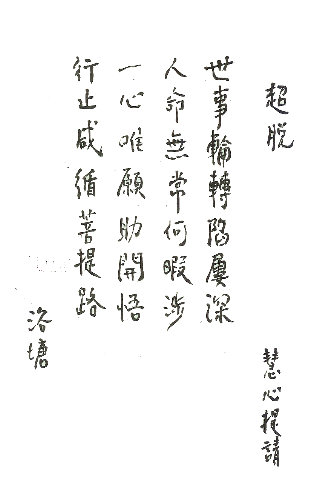 超脱
慧心提請
世事輪轉陷屢深
人命無常何暇涉
一心唯願助開悟
行止咸循菩提路
洛塘